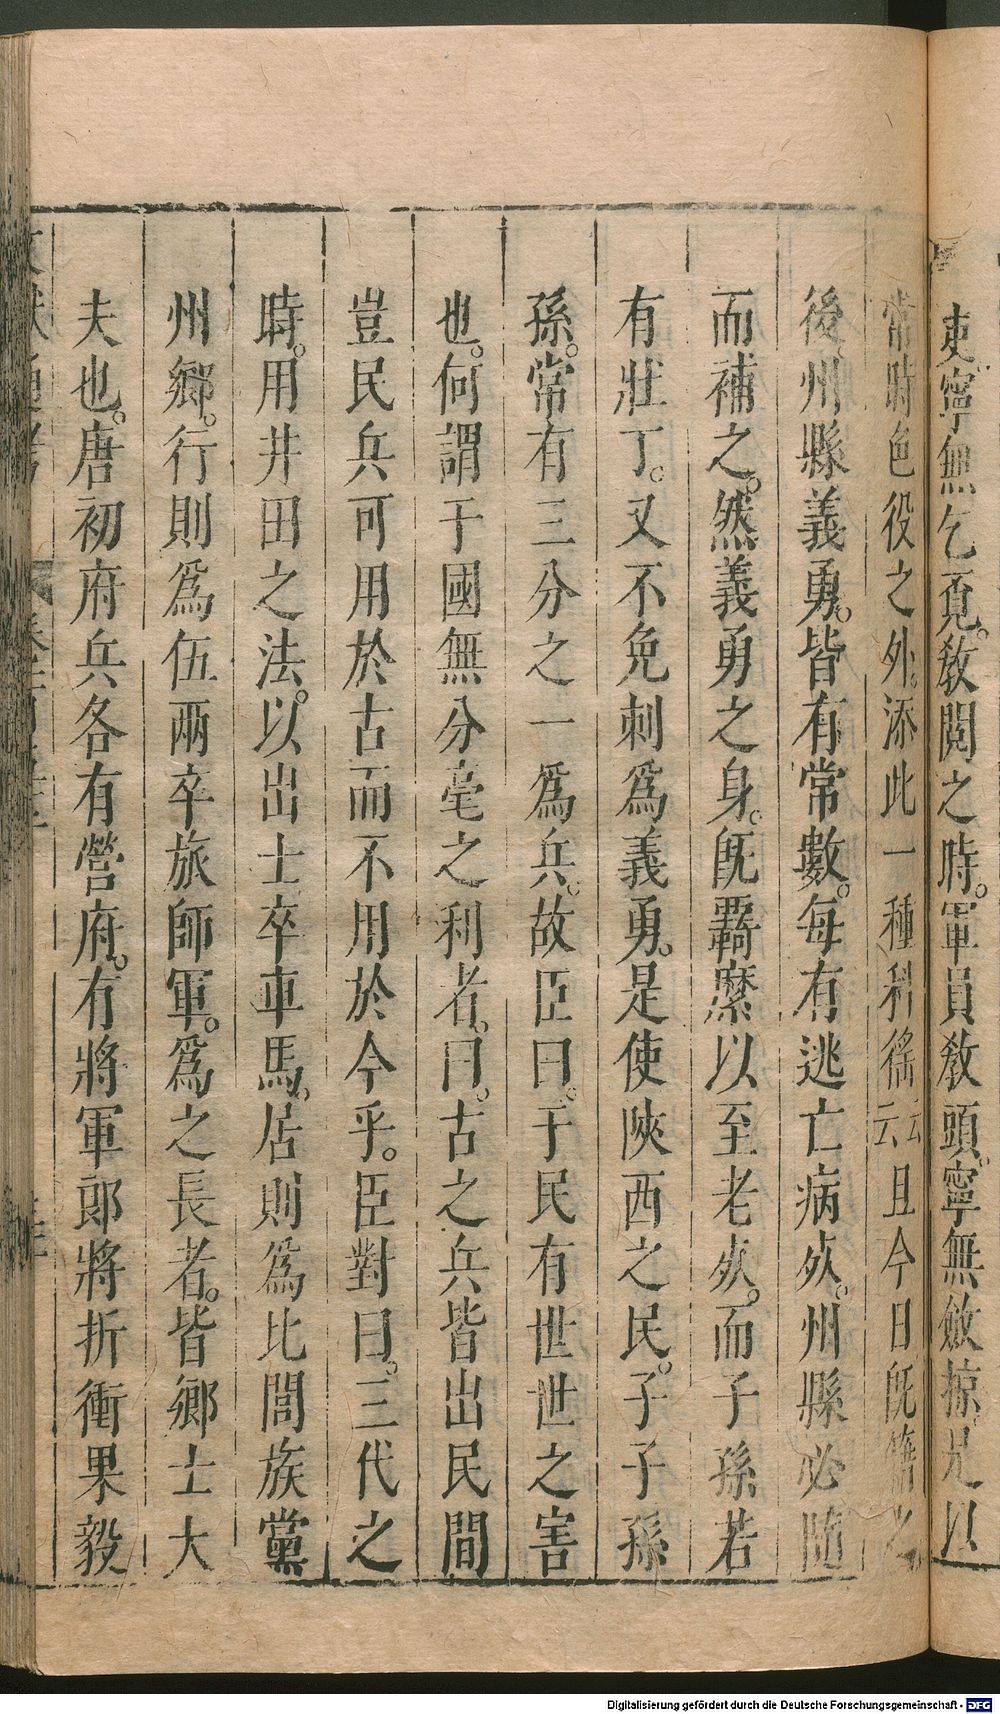 吏寧無乞覔敎閲之時軍員敎頭寧無斂掠是以
常時色役之外添此一種科徭云云且今日旣籍之
後州縣義勇皆有常數每有逃亡病死州縣必隨
而補之然義勇之身旣覊縻以至老死而子孫若
有壯丁又不免刺爲義勇是使陝西之民子子孫
孫常有三分之一爲兵故臣曰于民有世世之害
也何謂于國無分毫之利者曰古之兵皆出民間
豈民兵可用於古而不用於今乎臣對曰三代之
時用井田之法以出士卒車馬居則爲比閭族黨
州鄉行則爲伍兩卒旅師軍爲之長者皆鄉士大
夫也唐初府兵各有營府有將軍郎將折衝果毅
文獻通考
Digitalisierung gefördert durch die Deutsche Forschungsgemeinschaft - DFG